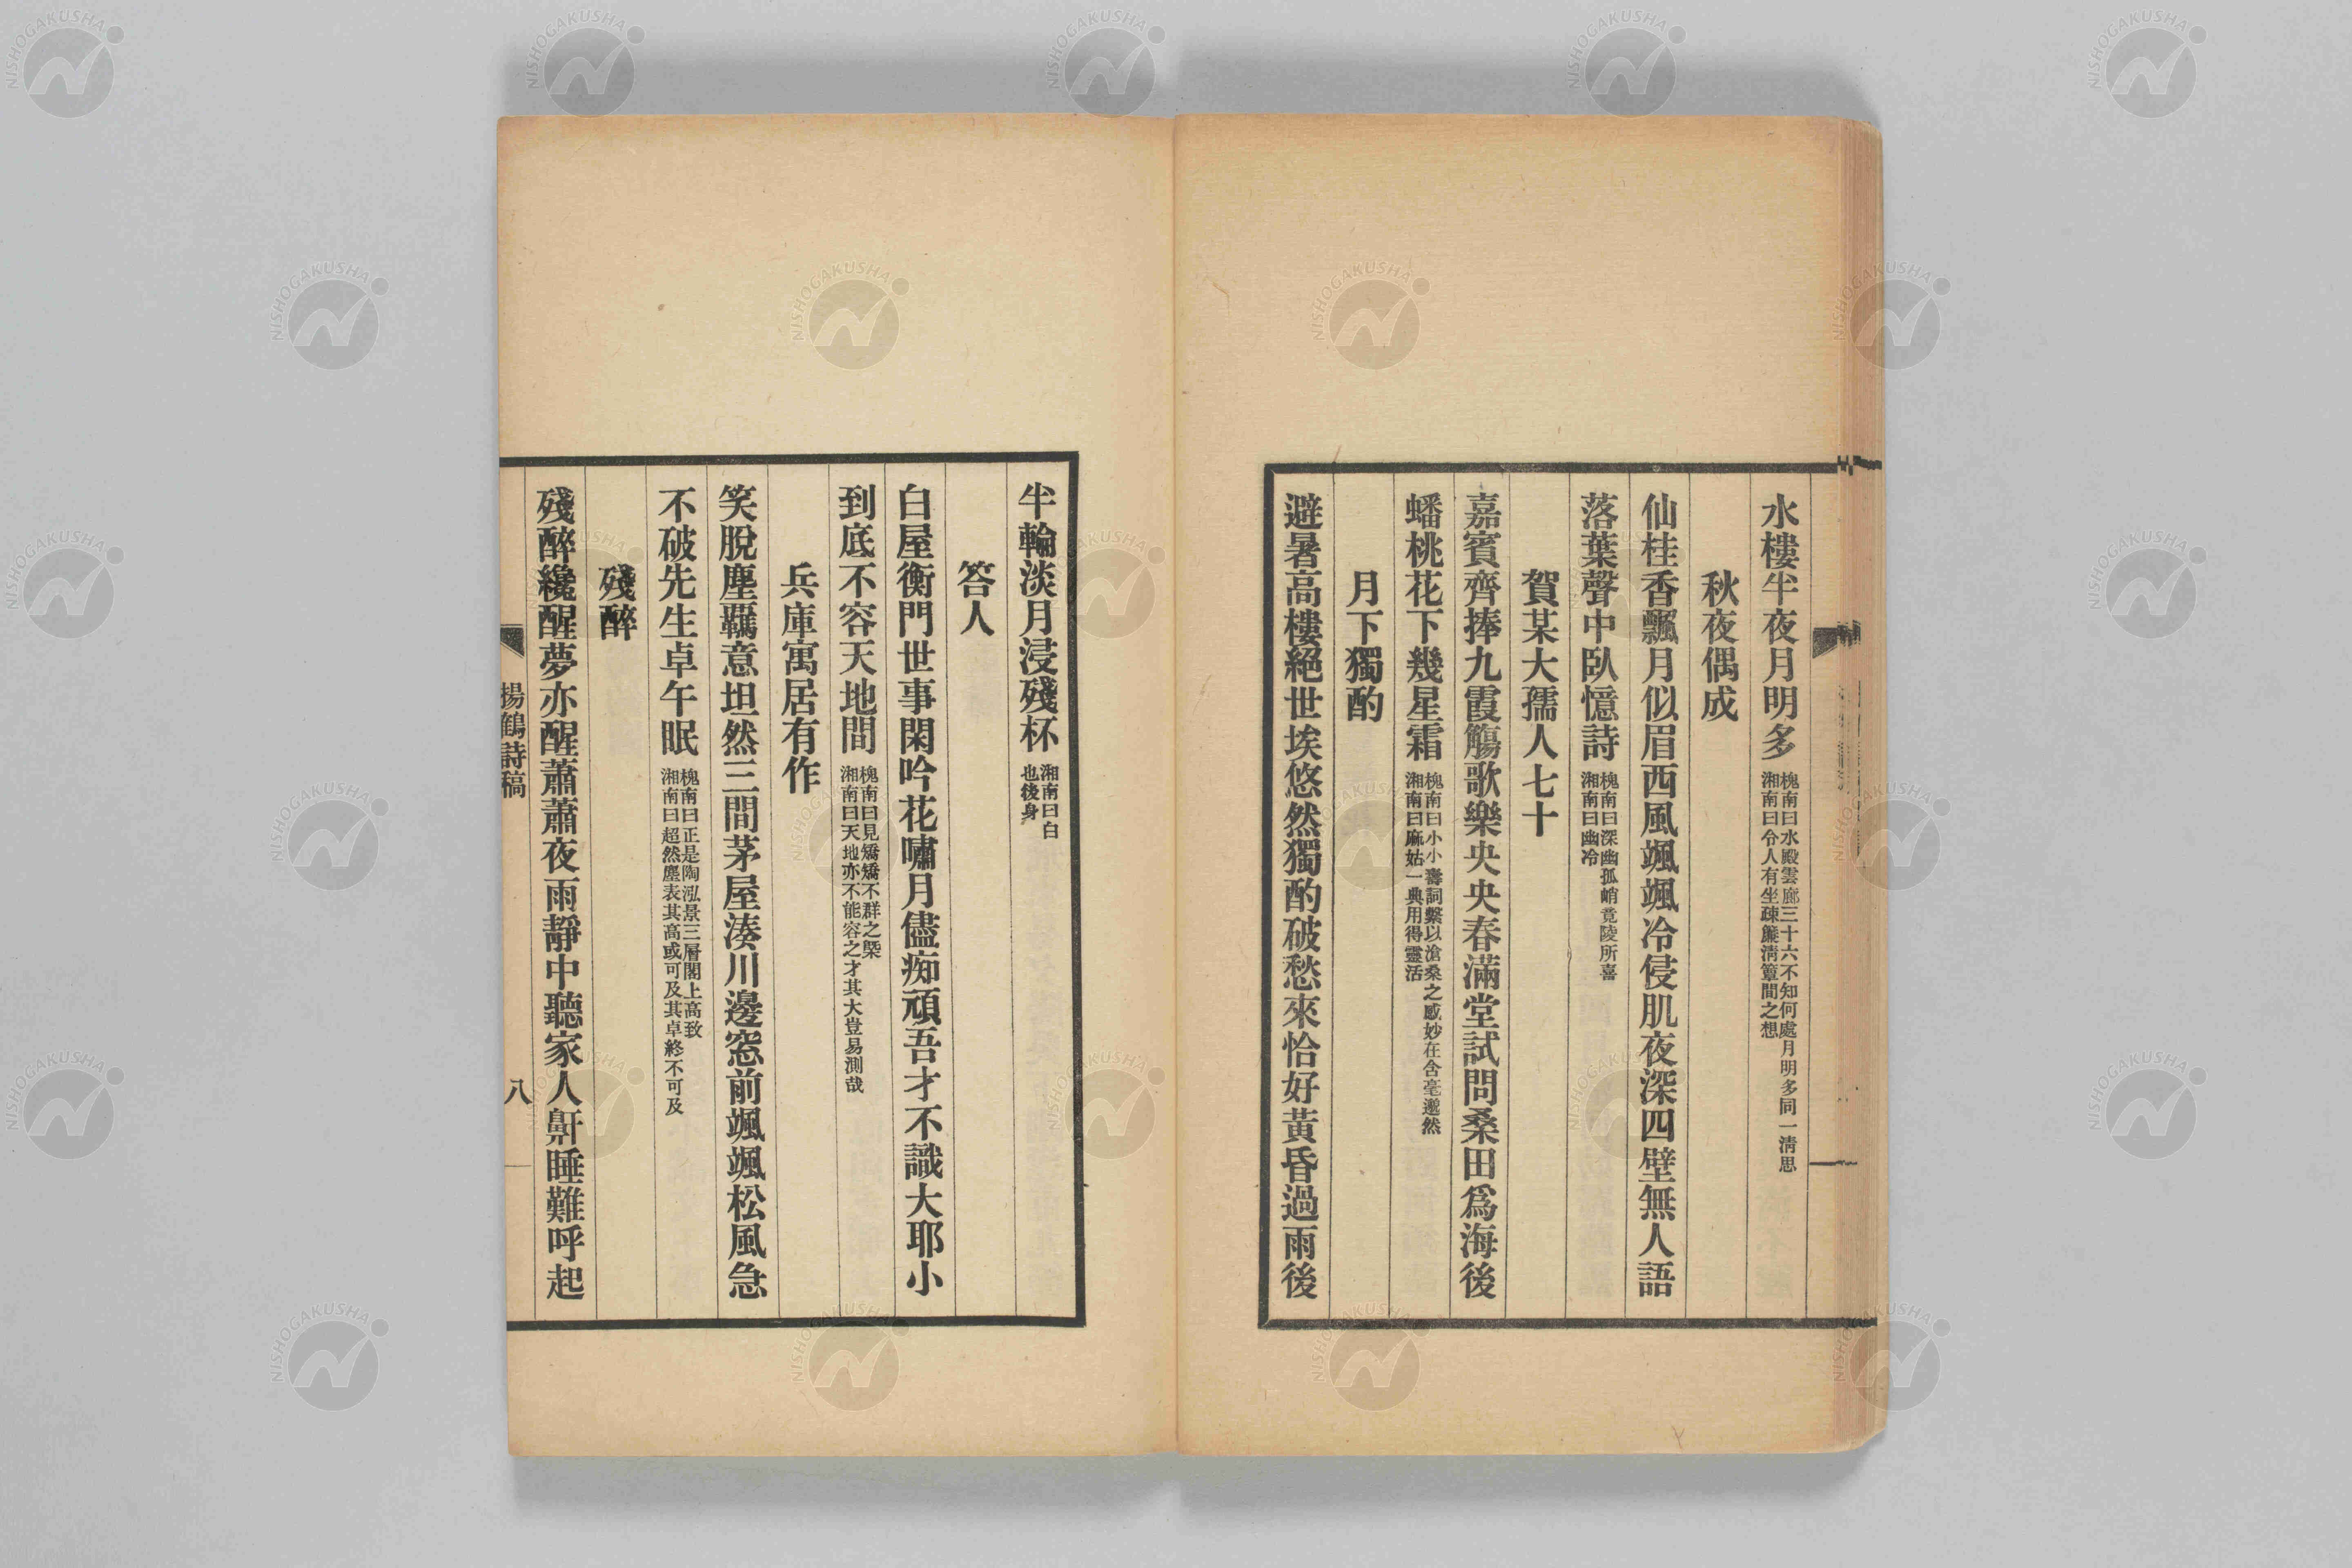 水樓半夜月明多
槐南曰水殿雲廊三十六不知何處月明多同一淸思
湘南曰令人有坐疎簾淸簟間之想
秋夜偶成
仙桂香飄月似眉西風颯颯冷侵肌夜深四壁無人語
落葉聲中臥憶詩
槐南曰深幽孤峭竟陵所喜
湘南曰幽冷
賀某大孺人七十
嘉賓齊捧九霞觴歌樂央央春滿堂試問桑田爲海後
蟠桃花下幾星霜
槐南曰小小壽詞繫以滄桑之感妙在含毫邈然
湘南曰麻姑一典用得靈活
月下獨酌
避暑高樓絕世埃悠然獨酌破愁來恰好黃昏過雨後
半輪淡月浸殘杯
湘南曰白
也後身
答人
白屋衡門世事閑吟花嘯月儘痴頑吾才不識大耶小
到底不容天地間
槐南曰見矯矯不群之槩
湘南曰天地亦不能容之才其大豈易測哉
兵庫寓居有作
笑脫塵羈意坦然三間茅屋湊川邊窓前颯颯松風急
不破先生卓午眠
槐南曰正是陶泓景三層閣上高致
湘南曰超然塵表其高或可及其卓終不可及
殘醉
殘醉纔醒夢亦醒蕭蕭夜雨靜中聽家人鼾睡難呼起
揚鶴詩稿
八
NISHOGAKUSHA